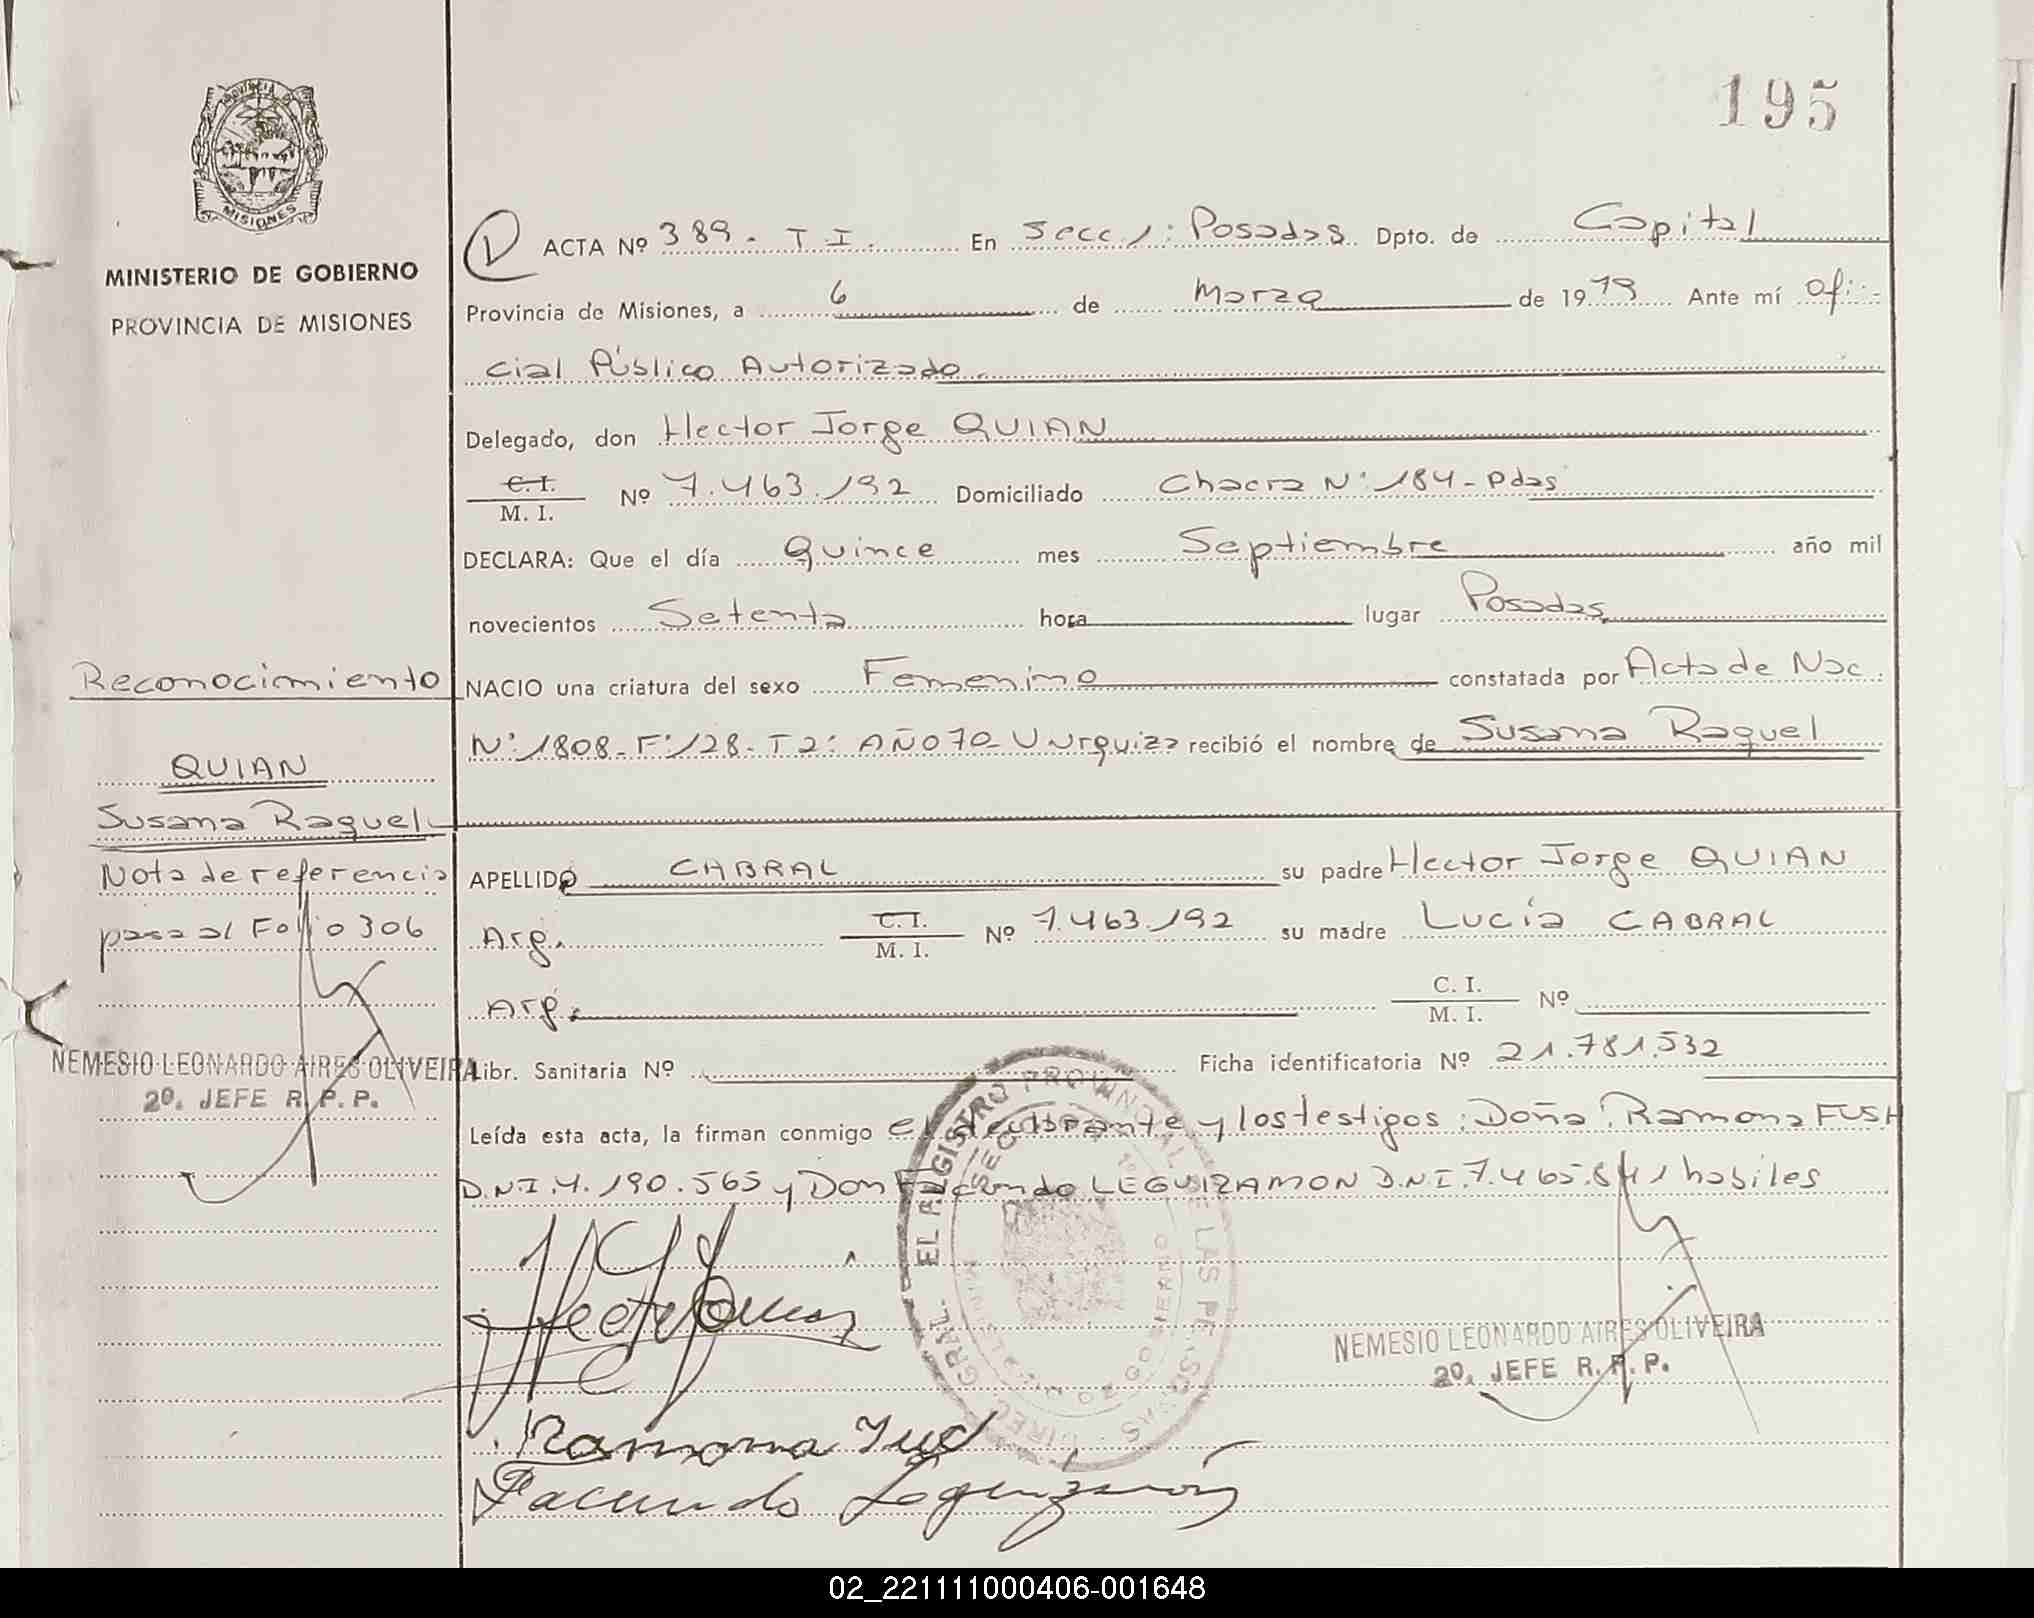 195
PROVINCIA DE
MISIONES
MINISTERIO DE GOBIERNO
PROVINCIA DE MISIONES
ACTA Nº 389. T I. En Secc 1: Posadas Dpto. de Capital
Provincia de Misiones, a 6 de Marzo de 1979 Ante mí Ofi-
cial Público Autorizado.
Delegado, don Hector Jorge QUIAN
C. I.
M. I. Nº 7.463.192 Domiciliado Chacra Nº 184 - Pdas
DECLARA: Que el día Quince mes Septiembre año mil
novecientos Setenta hora lugar Posadas,
NACIO una criatura del sexo Femenino constatada por Acta de Nac.
Nº 1808 - Fº 128 - T 2: AÑO 70 - V Urquiza recibió el nombre de Susana Raquel
APELLIDO CABRAL su padre Hector Jorge QUIAN
Arg. C. I.
M. I. Nº 7.463.192 su madre Lucía CABRAL
Arg. C. I.
M. I. Nº
Libr. Sanitaria Nº Ficha identificatoria Nº 21.781.532
Leída esta acta, la firman conmigo el declarante y los testigos: Doña: Ramona FUSH
D.N.I. 4.190.565 y Don Facundo LEGUIZAMON D.N.I. 7.465.841 habiles
Reconocimiento
QUIAN
Susana Raquel
Nota de referencia
pasa al Folio 306
NEMESIO LEONARDO AIRES OLIVEIRA
2º. JEFE R. P. P.
NEMESIO LEONARDO AIRES OLIVEIRA
2º. JEFE R. P. P.
Ramona
Facundo Leguizamón
02_221111000406-001648